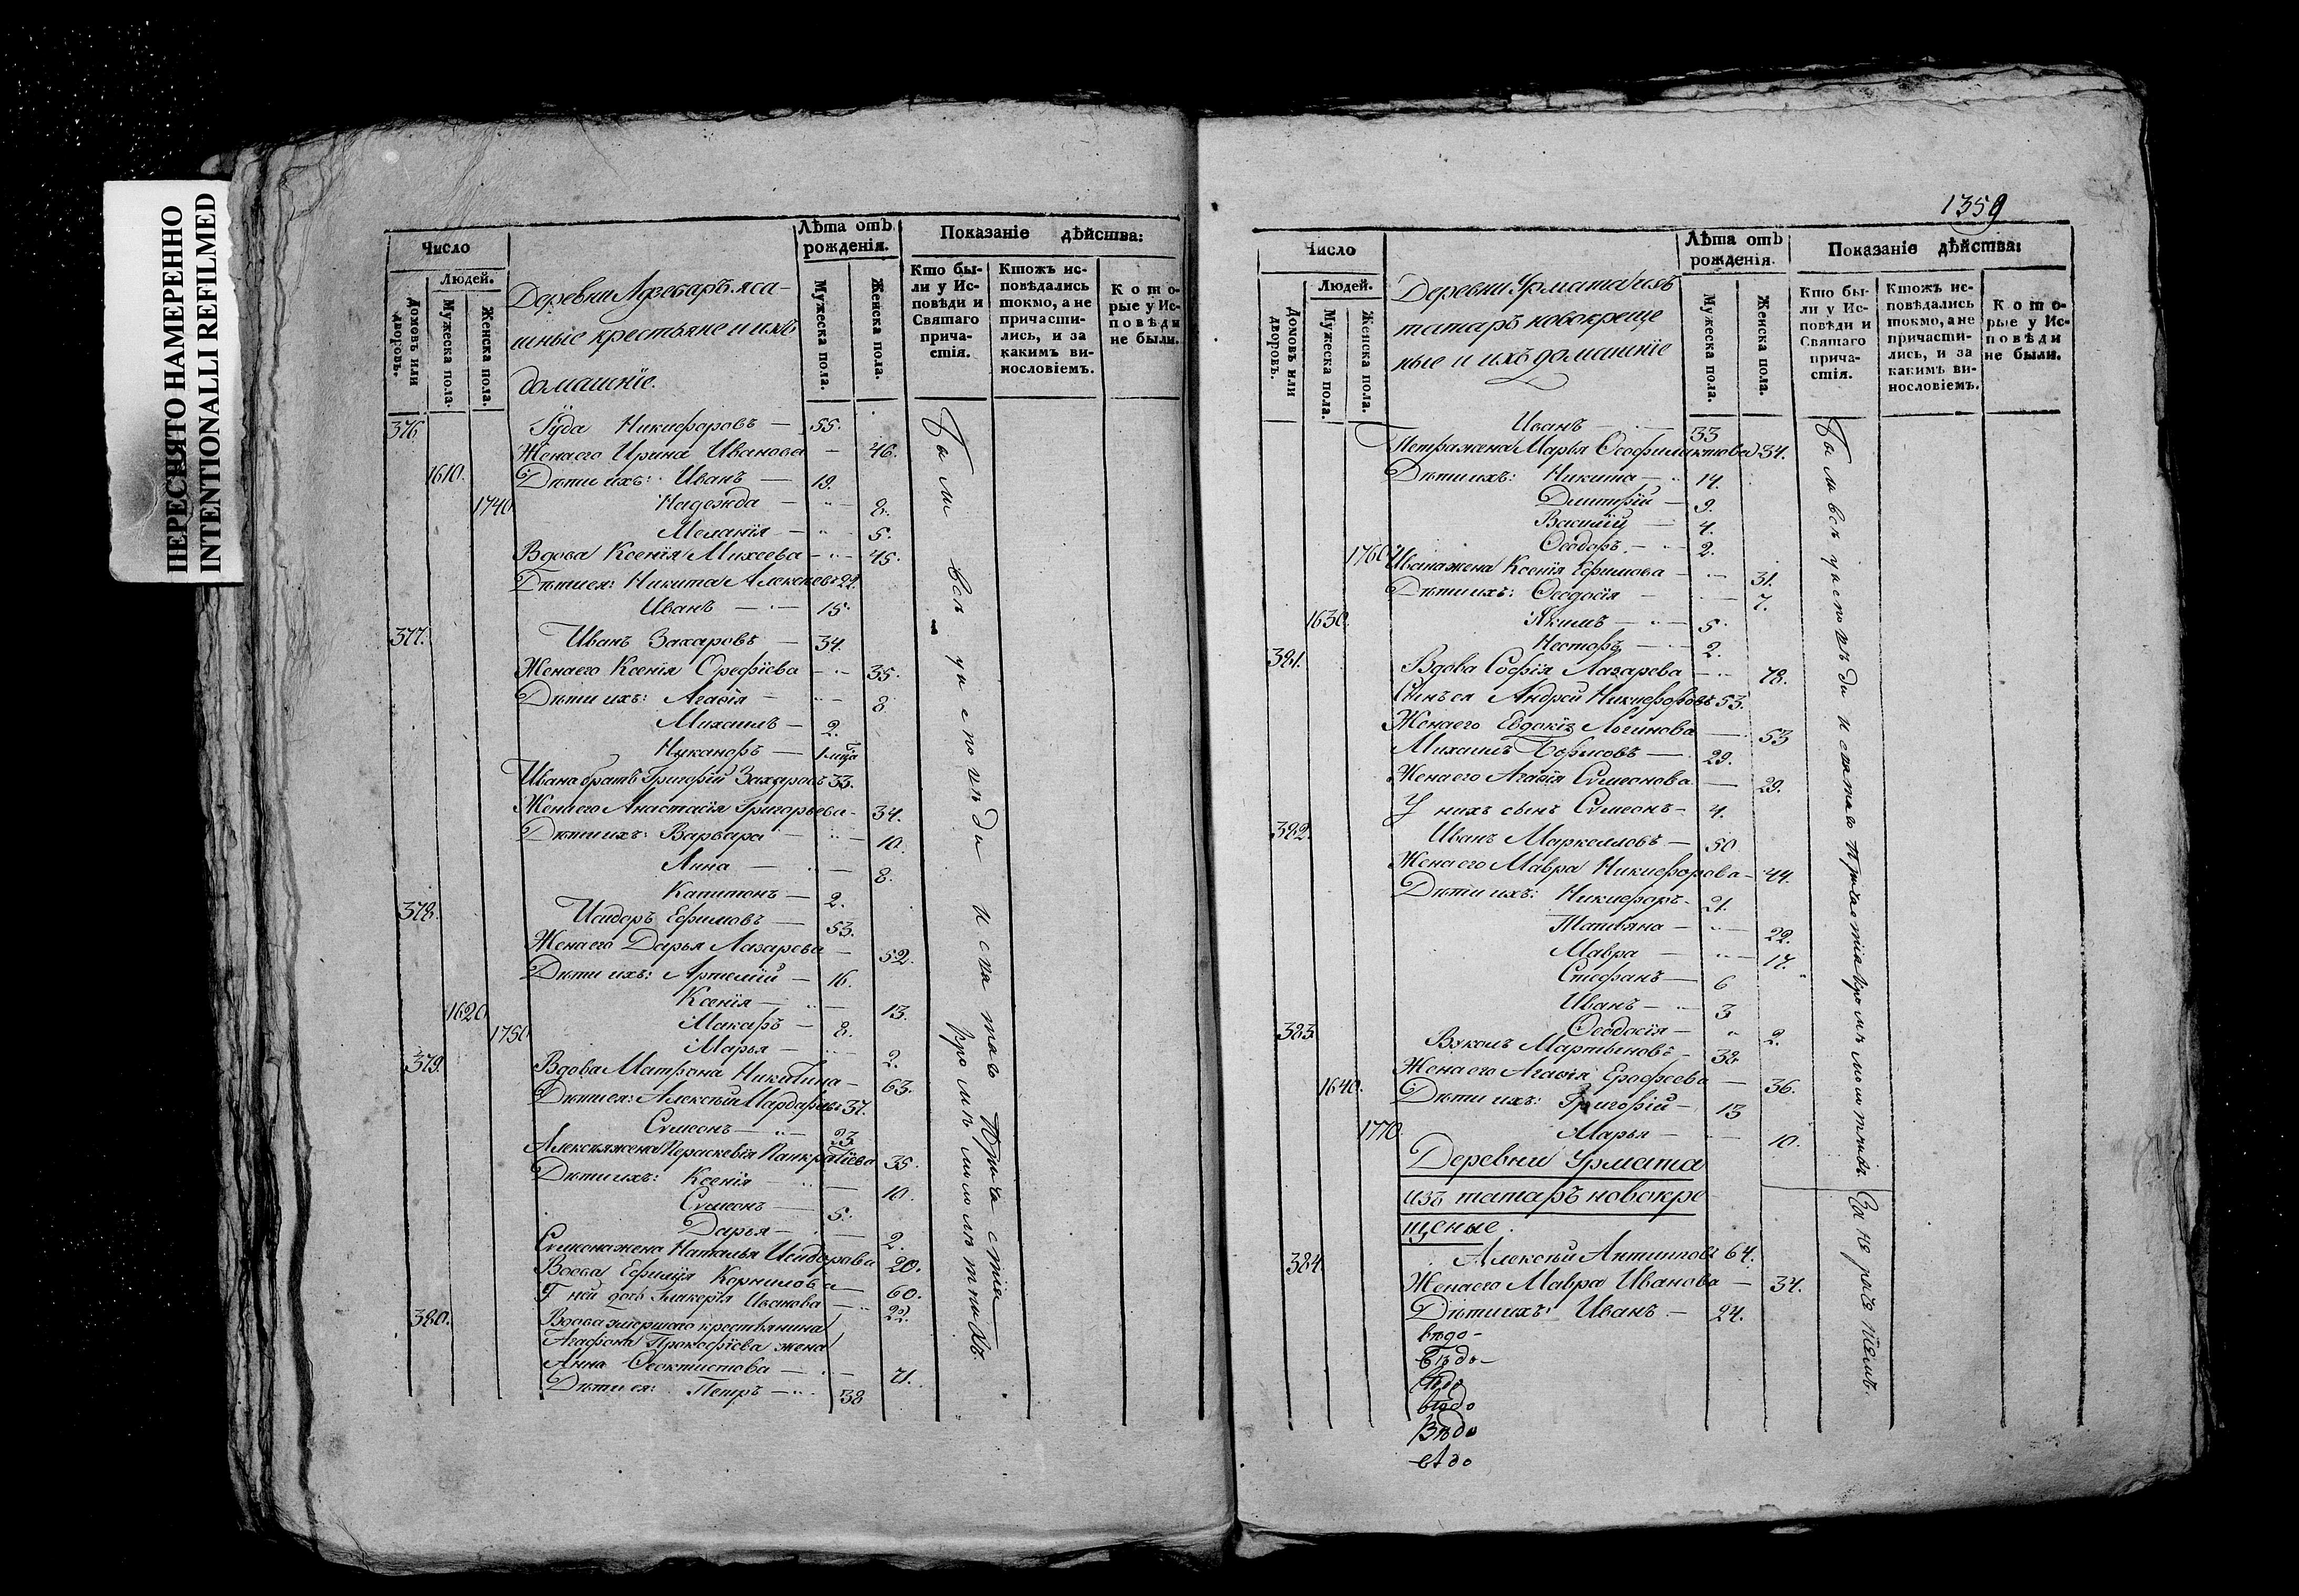 ПЕРЕСНЯТО НАМЕРЕННО
INTENTIONALLI REFILMED
Число
Людей.
Домовъ или дворовъ.
Мужеска пола.
Женска пола.
Деревни яса-
шные крестьяне и ихъ
домашнїе.
Лѣта отъ
рожденія.
Мужеска пола.
Женска пола.
Показаніе дѣйства:
Кто бы-
ли у Ис-
повѣди и
Святаго
прича-
стія.
Ктожъ ис-
повѣдались
токмо, а не
причасти-
лись, и за
какимъ ви-
нословіемъ.
Кото-
рые у Ис-
повѣди
не были.
376. Іуда Никифоровъ — 55.
Жена его Ирина Иванова — 46.
1610. Дѣти ихъ: Иванъ — 19.
1740. Надежда — 8.
Меланїя — 5.
Вдова Ксенїя Михеева — 45.
Дѣти ея: Никита Алексѣевъ 22.
Иванъ — 15.
377. Иванъ Захаровъ — 34.
Жена его Ксенїя Орефїева — 35.
Дѣти ихъ: Агафїя — 8
Михаилъ — 2.
Никаноръ — 1 мца
Ивана братъ Григорїй Захаровъ 33.
Жена его Анастасїя Григорьева — 34.
Дѣти ихъ: Варвара — 10.
Анна — 8.
Капитонъ — 2.
378. Исидоръ Ефимовъ — 53.
Жена его Дарья Лазарева — 52.
Дѣти ихъ: Артемїй — 16.
Ксенїя — 13.
1620. Макаръ — 8.
1750. Марья — 2.
379. Вдова Матрона Никитина — 63.
Дѣти ея: Алексѣй 37.
Сѵмеонъ — 23
Алексѣя жена Параскевїя Панкратїева 35.
Дѣти ихъ: Ксенїя — 10.
Сѵмеонъ — 5.
Дарья — 2.
Сѵмеона жена Наталья Исидорова 20.
Вдова Ефимїя Корнилова — 60.
дочь Гликерїя Иванова — 22.
380. Вдова умершаго крестьянина
Агафона Прокофїева жена
Анна Феоктистова — 71.
Дѣти ея: Петръ — 38
Были всѣ у исповѣди и святаго Причастїя
кромѣ малолѣтнихъ.
1359
Число
Людей.
Домовъ или дворовъ.
Мужеска пола.
Женска пола.
Деревни Урмата изъ
татаръ новокреще
ные и ихъ домашнїе
Лѣта отъ
рожденія.
Мужеска пола.
Женска пола.
Показаніе дѣйства:
Кто бы-
ли у Ис-
повѣди и
Святаго
прича-
стія.
Ктожъ ис-
повѣдались
токмо, а не
причасти-
лись, и за
какимъ ви-
нословіемъ.
Кото-
рые у Ис-
повѣди
не были.
Иванъ — 33
Петра жена Марья Феофилактова 34.
Дѣти ихъ: Никита — 14.
Димитрїй — 9.
Василїй — 4.
Феодоръ — 2.
1760. Ивана жена Ксенїя Ефимова — 31.
Дѣти ихъ: Феодосїя — 7.
1630. Якимъ — 5.
Несторъ — 2.
381. Вдова Софїя Лазарева — 78.
Сынъ ея Андрей Никифоровъ 53.
Жена его Евдокїя Логинова — 53
Михаилъ Борисовъ — 29.
Жена его Агафїя Сѵмеонова — 29.
У нихъ сынъ Сѵмеонъ — 4.
382. Иванъ Маркелловъ — 50
Жена его Мавра Никифорова — 44.
Дѣти ихъ: Никифоръ — 21.
Татьяна — 22.
Мавра — 17.
Стефанъ — 6
Иванъ — 3
Феодосїя — 2.
383. Вуколъ Мартыновъ — 38
Жена его Агафїя Ерофеева — 36.
1640. Дѣти ихъ: Григорїй — 13
1770. Марья — 10.
Деревни Урмата
изъ татаръ новокре
щеные.
384. Алексѣй 64.
Жена его Мавра Иванова — 34.
Дѣти ихъ: Иванъ — 24.
Были всѣ у исповѣди и святаго Причастїя кромѣ малолѣтнихъ.